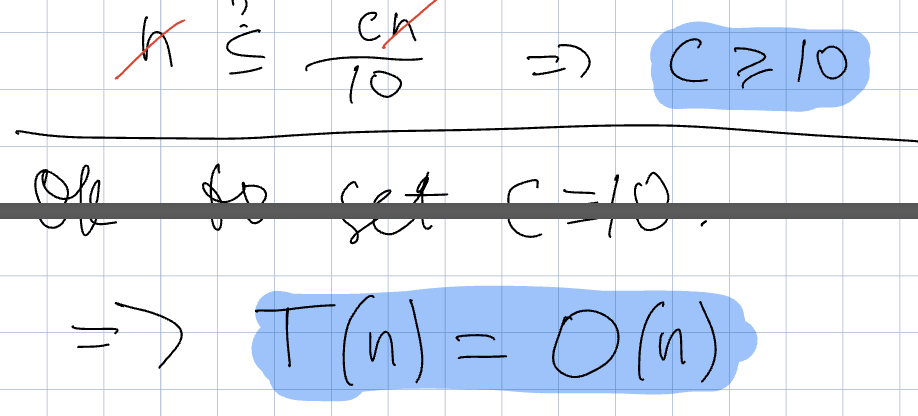 n ≤? cn/10 => C ≥ 10
Ok to set C=10.
=> T(n) = O(n)